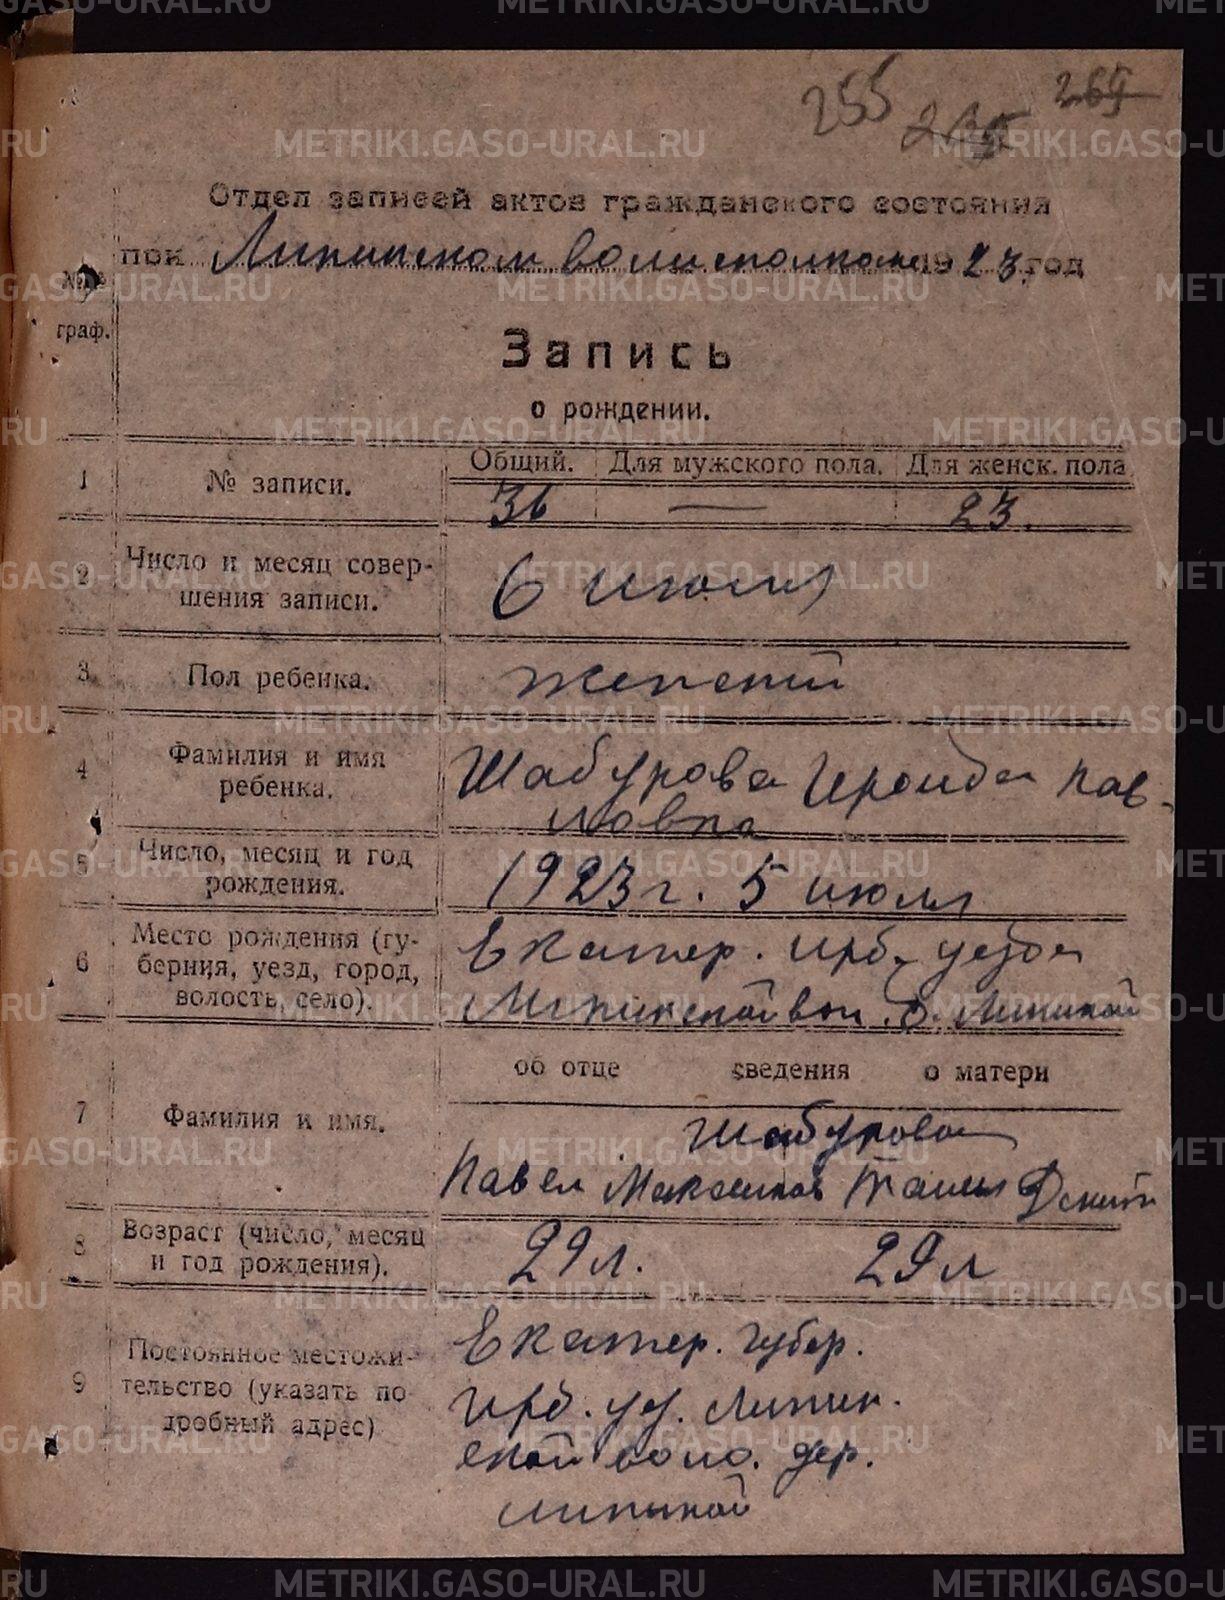 255 265
Отдел записей актов гражданского состояния
пок Липинском волисполкоме 1923 год
№№ граф.
Запись
о рождении.
Общий. Для мужского пола. Для женск. пола
1 № записи. 36 — 23.
2 Число и месяц совер-
шения записи. 6 июля
3 Пол ребенка. женский
4 Фамилия и имя
ребенка. Шабурова Ираида Пав-
ловна
5 Число, месяц и год
рождения. 1923 г. 5 июля
6 Место рождения (гу-
берния, уезд, город,
волость, село).
Екатер. Ирб. уезда
Липинской вол. д. Липиной
об отце сведения о матери
7 Фамилия и имя.
Шабурова
Павел Максимов
8 Возраст (число, месяц
и год рождения). 29 л. 29 л
9 Постоянное местожи-
тельство (указать по
дробный адрес)
Екатер. губер.
Ирб. уу. Липин.
ской воло. дер.
Липиной
METRIKI.GASO-URAL.RU